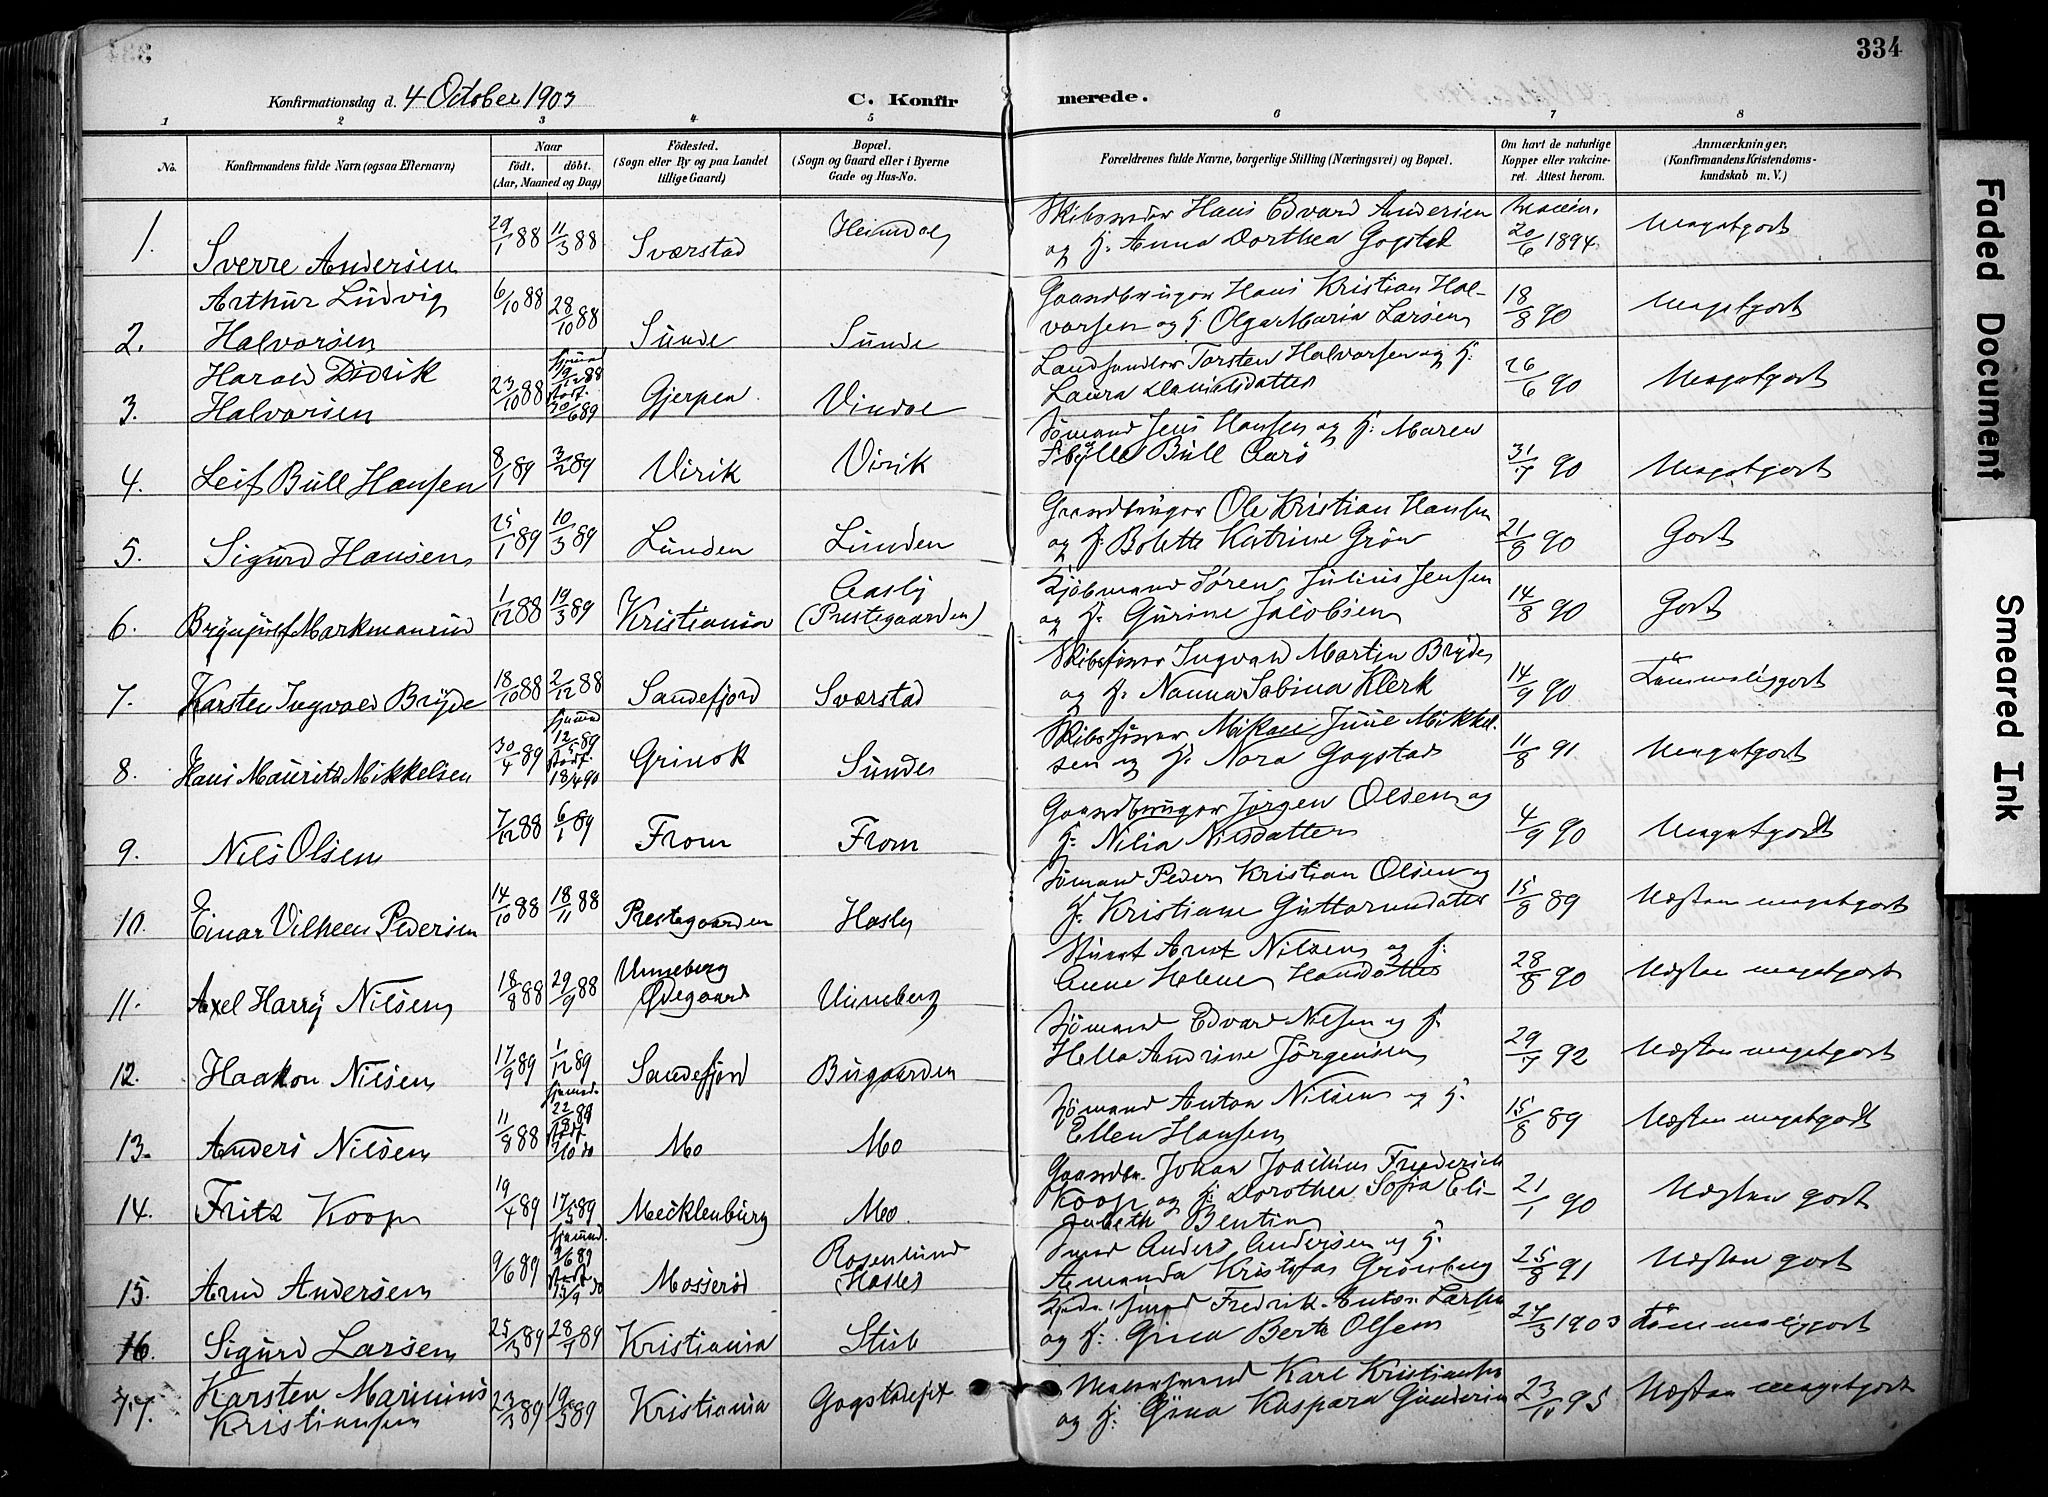 334
Konfirmationsdag d. 4 October 1903 C. Konfirmerede.
1 2 3 4 5 6 7 8
No. Konfirmandens fulde Navn (ogsaa Efternavn) Naar født. døbt. (Aar, Maaned og Dag) Fødested. (Sogn eller By og paa Landet tillige Gaard) Bopæl. (Sogn og Gaard efter i Byerne Gade og Hus-No. Forældrenes fulde Navne, borgerlige Stilling (Næringsvei) og Bopæl. Om havt de naturlige Kopper eller vakcineret. Attest herom. Anmærkninger, (Konfirmandens Kristendomskundskab m. V.)
1. Sverre Andersen 29/1 88 11/3 88 Sværstad Heimdal
Skibsreder Hans Edvard Andersen
og H. Anna Dorthea Gogstad 20/6 1894 Megetgodt
2. Arthur Ludvig
Halvorsen 6/10 88 28/10 88 Sunde Sunde
Gaardbruger Hans Kristian Hal-
vorsen og H. Olga Maria Larsen 18/8 90 Megetgodt
3. Harald Didrik
Halvorsen 23/10 88 hjemmed 19/12 88 Stadf. 30/6 89 Gjerpen Vindal
Landhandler Torsten Halvorsen og H.
Laura Danielsdatter 26/6 90 Megetgodt
4. Leif Bull Hansen 8/1 89 3/2 89 Virik Virik
Sømand Jens Hansen og H. Maren
Sibylle Bull Aarø 31/7 90 Megetgodt
5. Sigurd Hansen 25/1 89 10/3 89 Lunden Lunden
Gaardbruger Ole Kristian Hansen
og H. Bolette Katrine Grøn 21/8 90 Godt
6. Brynjulf Markmanrud 1/12 88 19/3 89 Kristiania Aasly
(Prestegaarden)
Kjøbmand Søren Julius Jensen
og H. Gurine Jacobsen 14/8 90 Godt
7. Karsten Ingvald Bryde 18/10 88 2/12 88 Sandefjord Sværstad
Skibsfører Ingvald Martin Bryde
og H. Nanna Sabina Klerk 14/9 90 Tåmmeliggodt
8. Hans Mauritz Mikkelsen 30/4 89 hjemmed 12/5 89 Stadf. 18/4 90 Grinok Sunde
Skibsfører Mikael Juul Mikkel-
sen og H. Nora Gogstad 11/8 91 Megetgodt
9. Nils Olsen 7/12 88 6/1 89 From From
Gaardbruger Jørgen Olsen og
H. Nilia Nilsdatter 4/9 90 Megetgodt
10. Einar Vilhelm Pedersen 14/10 88 18/11 88 Prestegaarden Hasle
Sømand Peder Kristian Olsen og
H. Kristiane Guttormsdatter 15/8 89 Næsten megetgodt
11. Axel Harry Nilsen 18/8 88 29/9 88 Unneberg
Ødegaard Unneberg
Stuert Arnt Nilsen og H.
Anne Helene Hansdatter 28/8 90 Næsten megetgodt
12. Haakon Nilsen 17/9 89 1/12 89 Sandefjord Bugaarden
Sømand Edvard Nilsen og H.
Hella Andrine Jørgensen 29/7 92 Næsten megetgodt
13. Anders Nilsen 11/8 88 hjemmed. Stadf. Mo Mo
Sømand Anton Nilsen og H.
Ellen Hansen 15/8 89 Næsten megetgodt
14. Fritz Koop 19/4 89 17/5 89 Mecklenburg Mo.
Gaardbr. Johan Joachim Frederich
Koop og H. Dorothea Sofia Eli-
sabeth Bentin 21/1 90 Næsten godt
15. Arne Andersen 9/6 89 hjemmed. 9/6 89 Stadf. Mosserød Rosenlund
Hasle
Smed Anders Andersen og H.
Amanda Kristofa Grønberg 25/8 91 Næsten godt
16. Sigurd Larsen 25/3 89 28/7 89 Kristiania Stub
Fredrik Anton Larsen
og H. Gina Berte Olsen 27/3 1903 Tåmmeliggodt
17. Karsten Marinius
Kristiansen 23/3 89 19/5 89 Kristiania Gogstad
Karl Kristiansen
og H. Gina Kaspara Gundersen 23/10 95 Næsten megetgodt
Faded Document
Smeared Ink